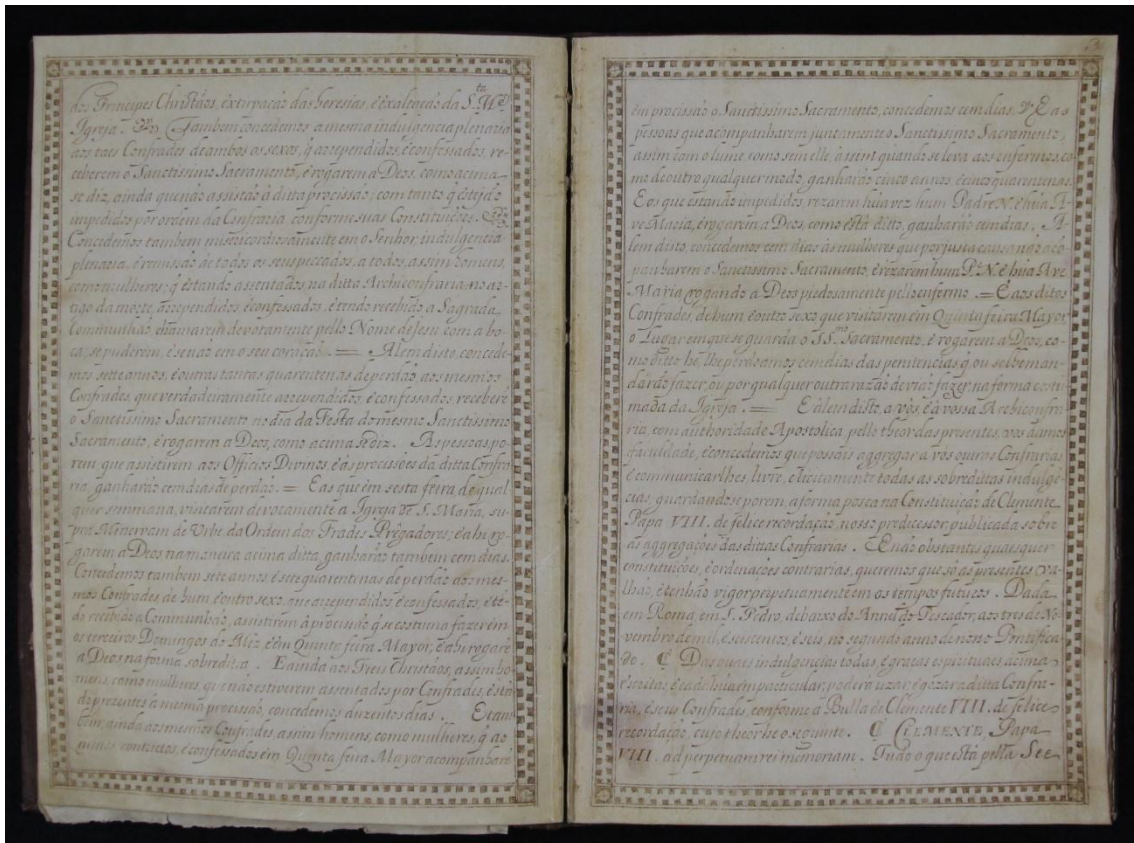 dos Principes Christãos, extirpação das heresias, e exaltação da S.ta M.e
Igreja. Tambem concedemos a mesma indulgencia plenaria
aos taes Confrades de ambos os sexos, q̃ arrependidos, e confessados, re-
ceberem o Sanctissimo Sacramento, e rogarem a Deos, como acima
se diz, ainda que não assistão à ditta procissão; com tanto q̃ estejão
impedidos por ordem da Confraria conforme suas Constituições.
Concedemos tambem misericordiosamente em o Senhor, indulgencia
plenaria, e remissão de todos os seus peccados, a todos, assim homens,
como mulheres, q̃ estando assentados na ditta Archiconfraria, no ar-
tigo da morte, arrependidos, e confessados, e tendo recebido a Sagrada
Communhão, chamarem devotamente pello Nome de Jesu com a bo-
ca, se puderem, e se não em o seu coração. = Alem disto, concede-
mos sette annos, e outras tantas quarentenas de perdão, aos mesmos
Confrades que verdadeiramente arrependidos, e confessados, receberẽ
o Sanctissimo Sacramento no dia da Festa do mesmo Sanctissimo
Sacramento, e rogarem a Deos, como acima se diz. As pessoas po-
rem que assistirem aos Officios Divinos, e às procissões da ditta Confra-
ria, ganharão cem dias de perdão. = E as que em sesta feira de qual
quer simmana, visitarem devotamente a Igreja de S. Maria, su-
pra Minervam de Urbe da Ordem dos Frades Prègadores, e ahi ro-
garem a Deos na maneira acima ditta, ganharão tambem cem dias.
Concedemos tambem sete annos, e sete quarentenas de perdão aos mes-
mos Confrades, de hum, e outro sexo, que arrependidos, e confessados, e tẽ-
do recebido a Communhão, assistirem à procissão q̃ se costuma fazer em
os terceiros Domingos do Mez, e em Quinta feira Mayor, e ahi rogarẽ
a Deos na forma sobreditta. E ainda aos Fieis Christãos, assim ho-
mens, como mulheres, que não estiverem assentados por Confrades, e stã
do prezentes à mesma procissão, concedemos duzentos dias. E tam
bem, ainda aos mesmos Confrades, assim homens, como mulheres, q̃ ao
menos contrictos, e confessados em Quinta feira Mayor acompanharẽ
em procissão o Sanctissimo Sacramento, concedemos cem dias. E as
pessoas que acompanharem juntamente o Sanctissimo Sacramento,
assim com o lume, como sem elle, assim quando se leva aos enfermos, co-
mo de outro qualquer modo, ganharão cinco annos, e cinco quarentenas.
E os que estando impedidos rezarem hũa vez hum Padre N. e hũa A-
ve Maria, e rogarem a Deos, como està ditto, ganharão cem dias. A-
lem disto, concedemos cem dias às mulheres que por justa causa não aco-
panharem o Sanctissimo Sacramento, e rezarem hum P.e N. e hũa Ave
Maria rogando a Deos piedosamente pello enfermo. = E aos ditos
Confrades, de hum, e outro sexo que visitarem em Quinta feira Mayor
o Lugar em que se guarda o SS.mo Sacramento, e rogarem a Deos, co-
mo ditto he, lhe perdoamos cem dias das penitencias q̃, ou se lhe man-
darão fazer, ou por qualquer outra razão devião fazer, na forma costu-
mada da Igreja. = E alem disto, a vós, e à vossa Archiconfra-
ria, com authoridade Apostolica pello theor das presentes, vos damos
faculdade, e concedemos que possais aggregar a vós outras Confrarias
e communicarlhes livre, e licitamente todas as sobredittas indulgẽ-
cias, guardandose porem, a forma posta na Constituição de Clemente
Papa VIII. de felice recordação, nosso predecessor, publicada sobre
as aggregações das dittas Confrarias. E não obstantes quaesquer
constituições, e ordenações contrarias, queremos que só as presentes va-
lhão, e tenhão vigor perpetuamente em os tempos futuros. Dada
em Roma, em S. Pedro, debaixo do Annel do Pescador, aos tres de No-
vembro de mil, e seiscentos, e seis, no segundo anno de nosso Pontifica-
do. Das quaes indulgencias todas, e graças espirituaes, acima
escritas, e cada hũa em particular, poderà uzar, e gozar a ditta Confra-
ria, e seus Confrades, conforme a Bulla de Clemente VIII. de felice
recordação, cujo theor he o seguinte. CLEMENTE Papa
VIII. ad perpetuam rei memoriam. Tudo o que està pella See